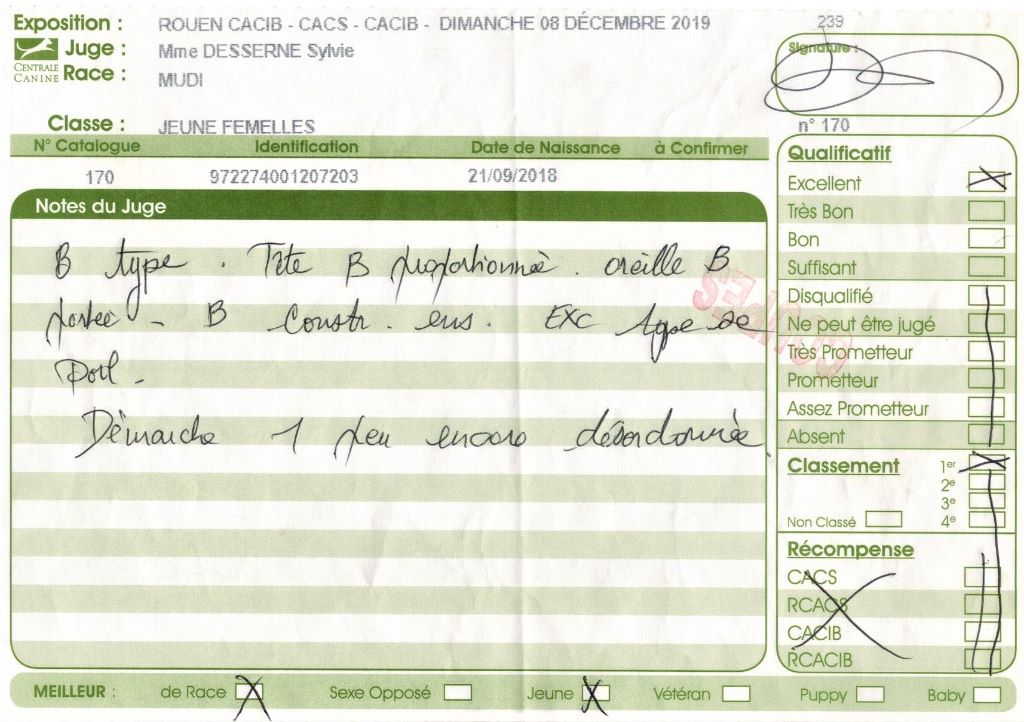 Exposition : ROUEN CACIB - CACS - CACIB - DIMANCHE 08 DÉCEMBRE 2019 239
CENTRALE CANINE
Juge : Mme DESSERNE Sylvie
Race : MUDI
Signature :
Classe : JEUNE FEMELLES n° 170
N° Catalogue Identification Date de Naissance à Confirmer
170 972274001207203 21/09/2018
Notes du Juge
B type . Tête B proportionnée . oreille B
portée - B Constr. ens. EXC type de
Poil -
Démarche 1 peu encore désordonnée.
COUPES
Qualificatif
Excellent
Très Bon
Bon
Suffisant
Disqualifié
Ne peut être jugé
Très Prometteur
Prometteur
Assez Prometteur
Absent
Classement 1er
2e
3e
Non Classé 4e
Récompense
CACS
RCACS
CACIB
RCACIB
MEILLEUR : de Race Sexe Opposé Jeune Vétéran Puppy Baby